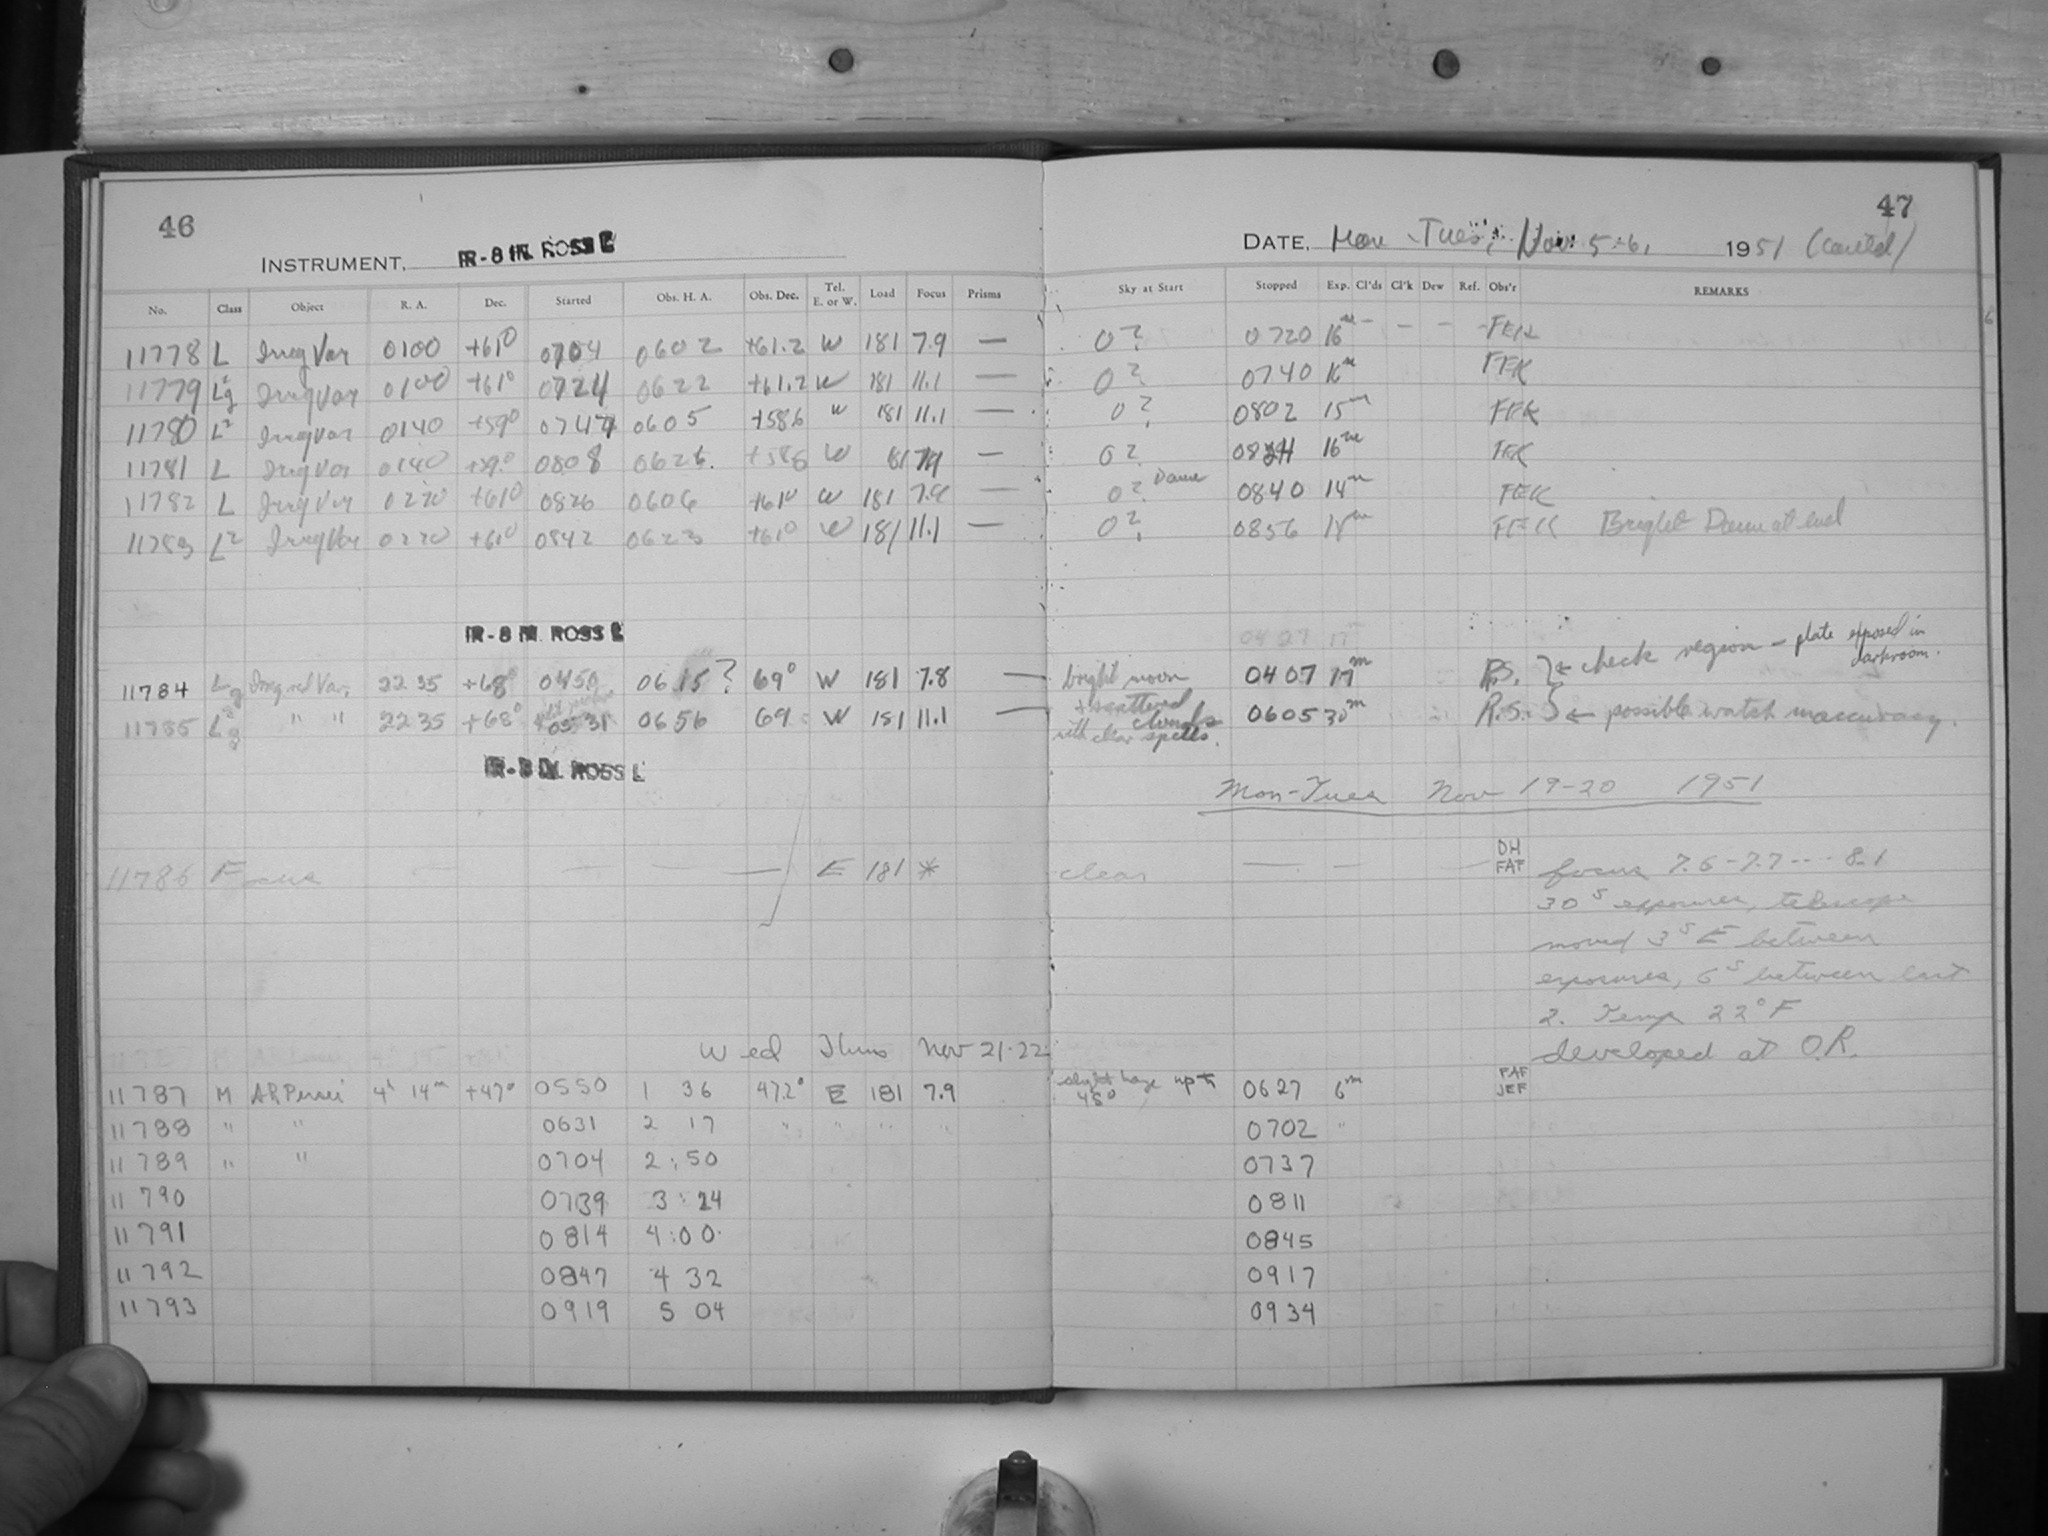 46
INSTRUMENT, IR-8 IN. ROSS L
No. Class Object R. A. Dec. Started Obs. H. A. Obs. Dec. Tel. E. or W. Load Focus Prisms
11778 L Irreg Var 0100 +61° 0704 0602 +61.2 W 181 7.9 —
11779 Irreg Var 0100 +61° 0724 0622 +61.2 W 181 11.1 —
11780 L² Irreg Var 0140 +59° 0747 0605 +58.6 W 181 11.1 —
11781 L Irreg Var 0140 +59° 0808 0626 +586 W 181 7.9 —
11782 L Irreg Var 0220 +61° 0826 0606 +61° W 181 7.9 —
11783 L² Irreg Var 0220 +61° 0842 0623 +61° W 181 11.1 —
IR-8 IN. ROSS L
11784 Irreg red Var. 2235 +68° 0450 0615? 69° W 181 7.8 —
11785 " " 2235 +68° 0531 0656 69 W 181 11.1 —
IR-8 IN. ROSS L
11786 Focus — — — — E 181 *
Wed Thurs Nov 21-22
11787 M AR Persei 4h 14m +47° 0550 1 36 47.2° E 181 7.9
11788 " " 0631 2 17 " " " "
11789 " " 0704 2:50
11790 0739 3:24
11791 0814 4:00
11792 0847 4 32
11793 0919 5 04
47
DATE, Mon Tues, Nov. 5-6, 1951 (contd)
Sky at Start Stopped Exp. Cl'ds Cl'k Dew Ref. Obs'r REMARKS
0? 0720 16m — — — FEK
0? 0740 16m FEK
0? 0802 15m FEK
0? 0824 16m FEK
0? Dawn 0840 14m FEK
0? 0856 FEK Bright Dawn at end
0427 17m
bright moon 0407 17m R.S. } ← check region - plate exposed in darkroom.
+ scattered clouds 0605 30m R.S. } ← possible watch inaccuracy.
with clear spells.
Mon-Tues Nov 19-20 1951
DH
clear — — — FAF focus 7.6-7.7---8.1
30s exposures, telescope
moved 3s E between
exposures, 6s between last
2. Temp 22°F
developed at O.R.
slight haze up to 45° 0627 6m FAF JEF
0702 "
0737
0811
0845
0917
0934